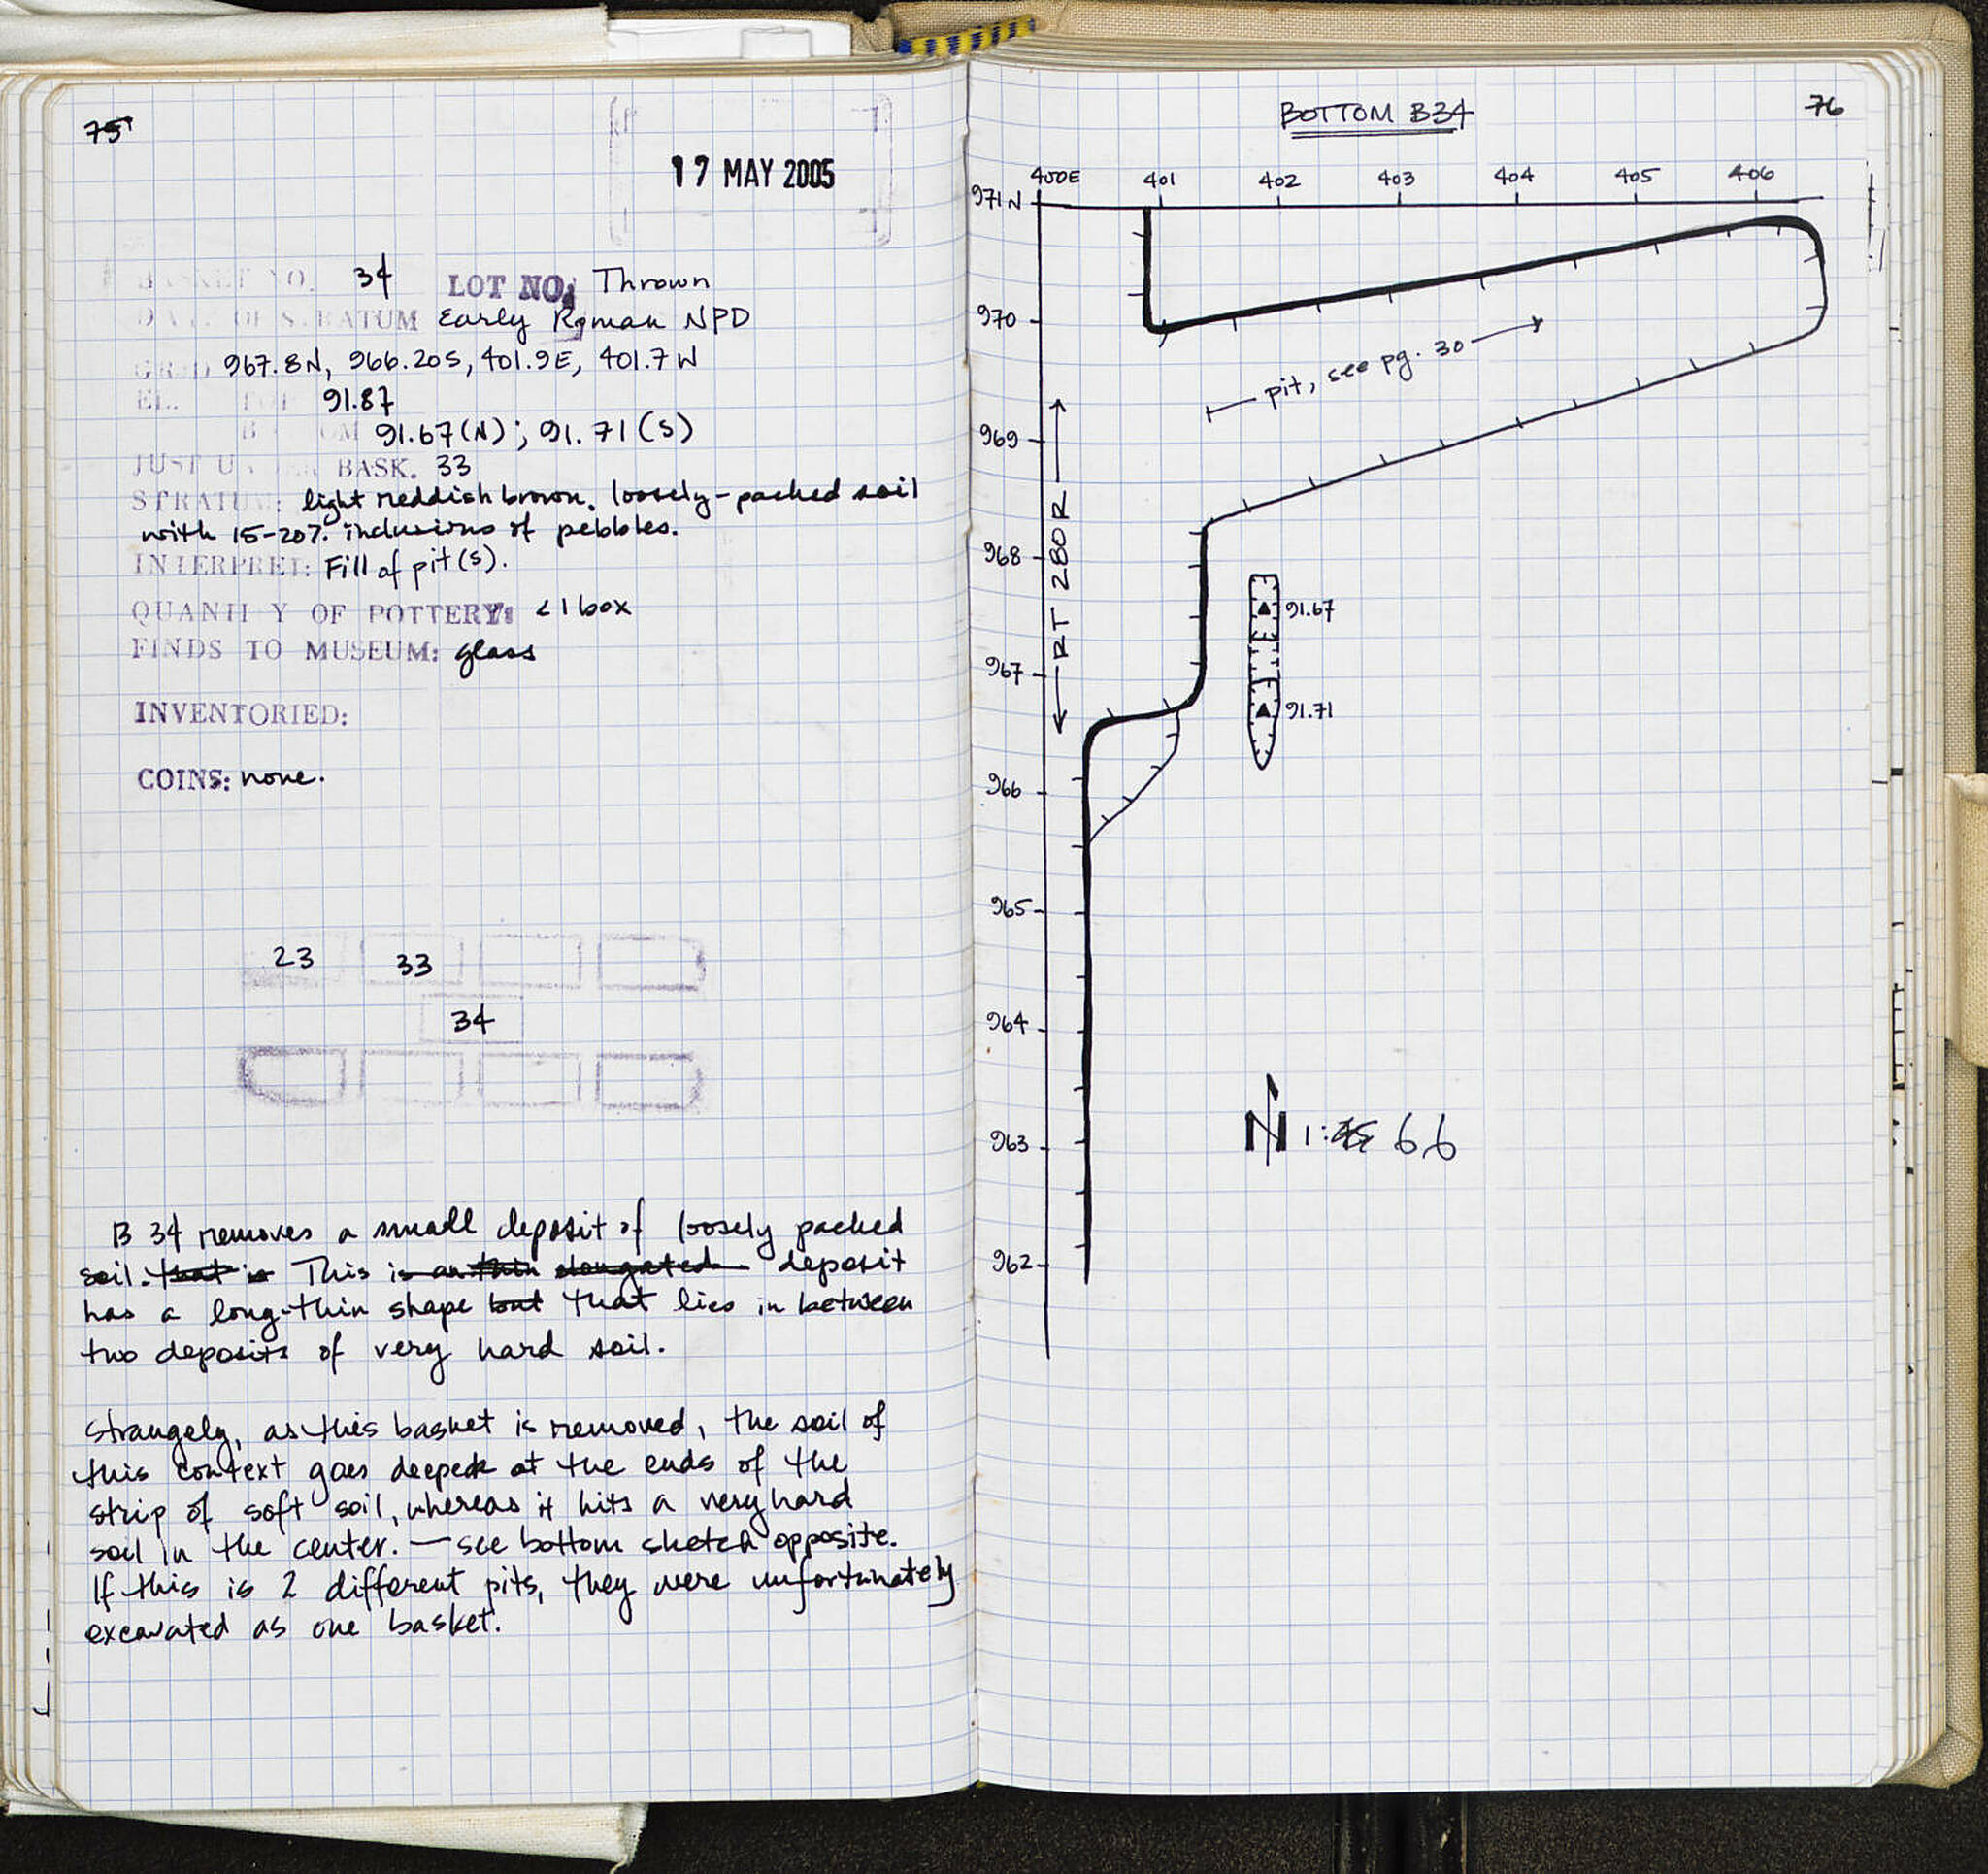 75
17 MAY 2005
BASKET NO. 34 LOT NO. Thrown
DATE OF STRATUM Early Roman NPD
GRID 967.8N, 966.20S, 401.9E, 401.7W
EL. TOP 91.87
BOTTOM 91.67(N); 91.71(S)
JUST UNDER BASK. 33
STRATUM: light reddish brown, loosely-packed soil
with 15-20% inclusions of pebbles.
INTERPRET: Fill of pit(s).
QUANTITY OF POTTERY: <1 box
FINDS TO MUSEUM: glass
INVENTORIED:
COINS: none.
23 33
34
B 34 removes a small deposit of loosely packed
soil. that is This is an thin elongated deposit
has a long-thin shape but that lies in between
two deposits of very hard soil.
Strangely, as this basket is removed, the soil of
this context goes deeper at the ends of the
strip of soft soil, whereas it hits a very hard
soil in the center. — see bottom sketch opposite.
If this is 2 different pits, they were unfortunately
excavated as one basket.
BOTTOM B34
76
400E 401 402 403 404 405 406
971N
970
pit, see pg. 30
969
RT 280R
968
91.67
967
91.71
966
965
964
N 1: 66
963
962